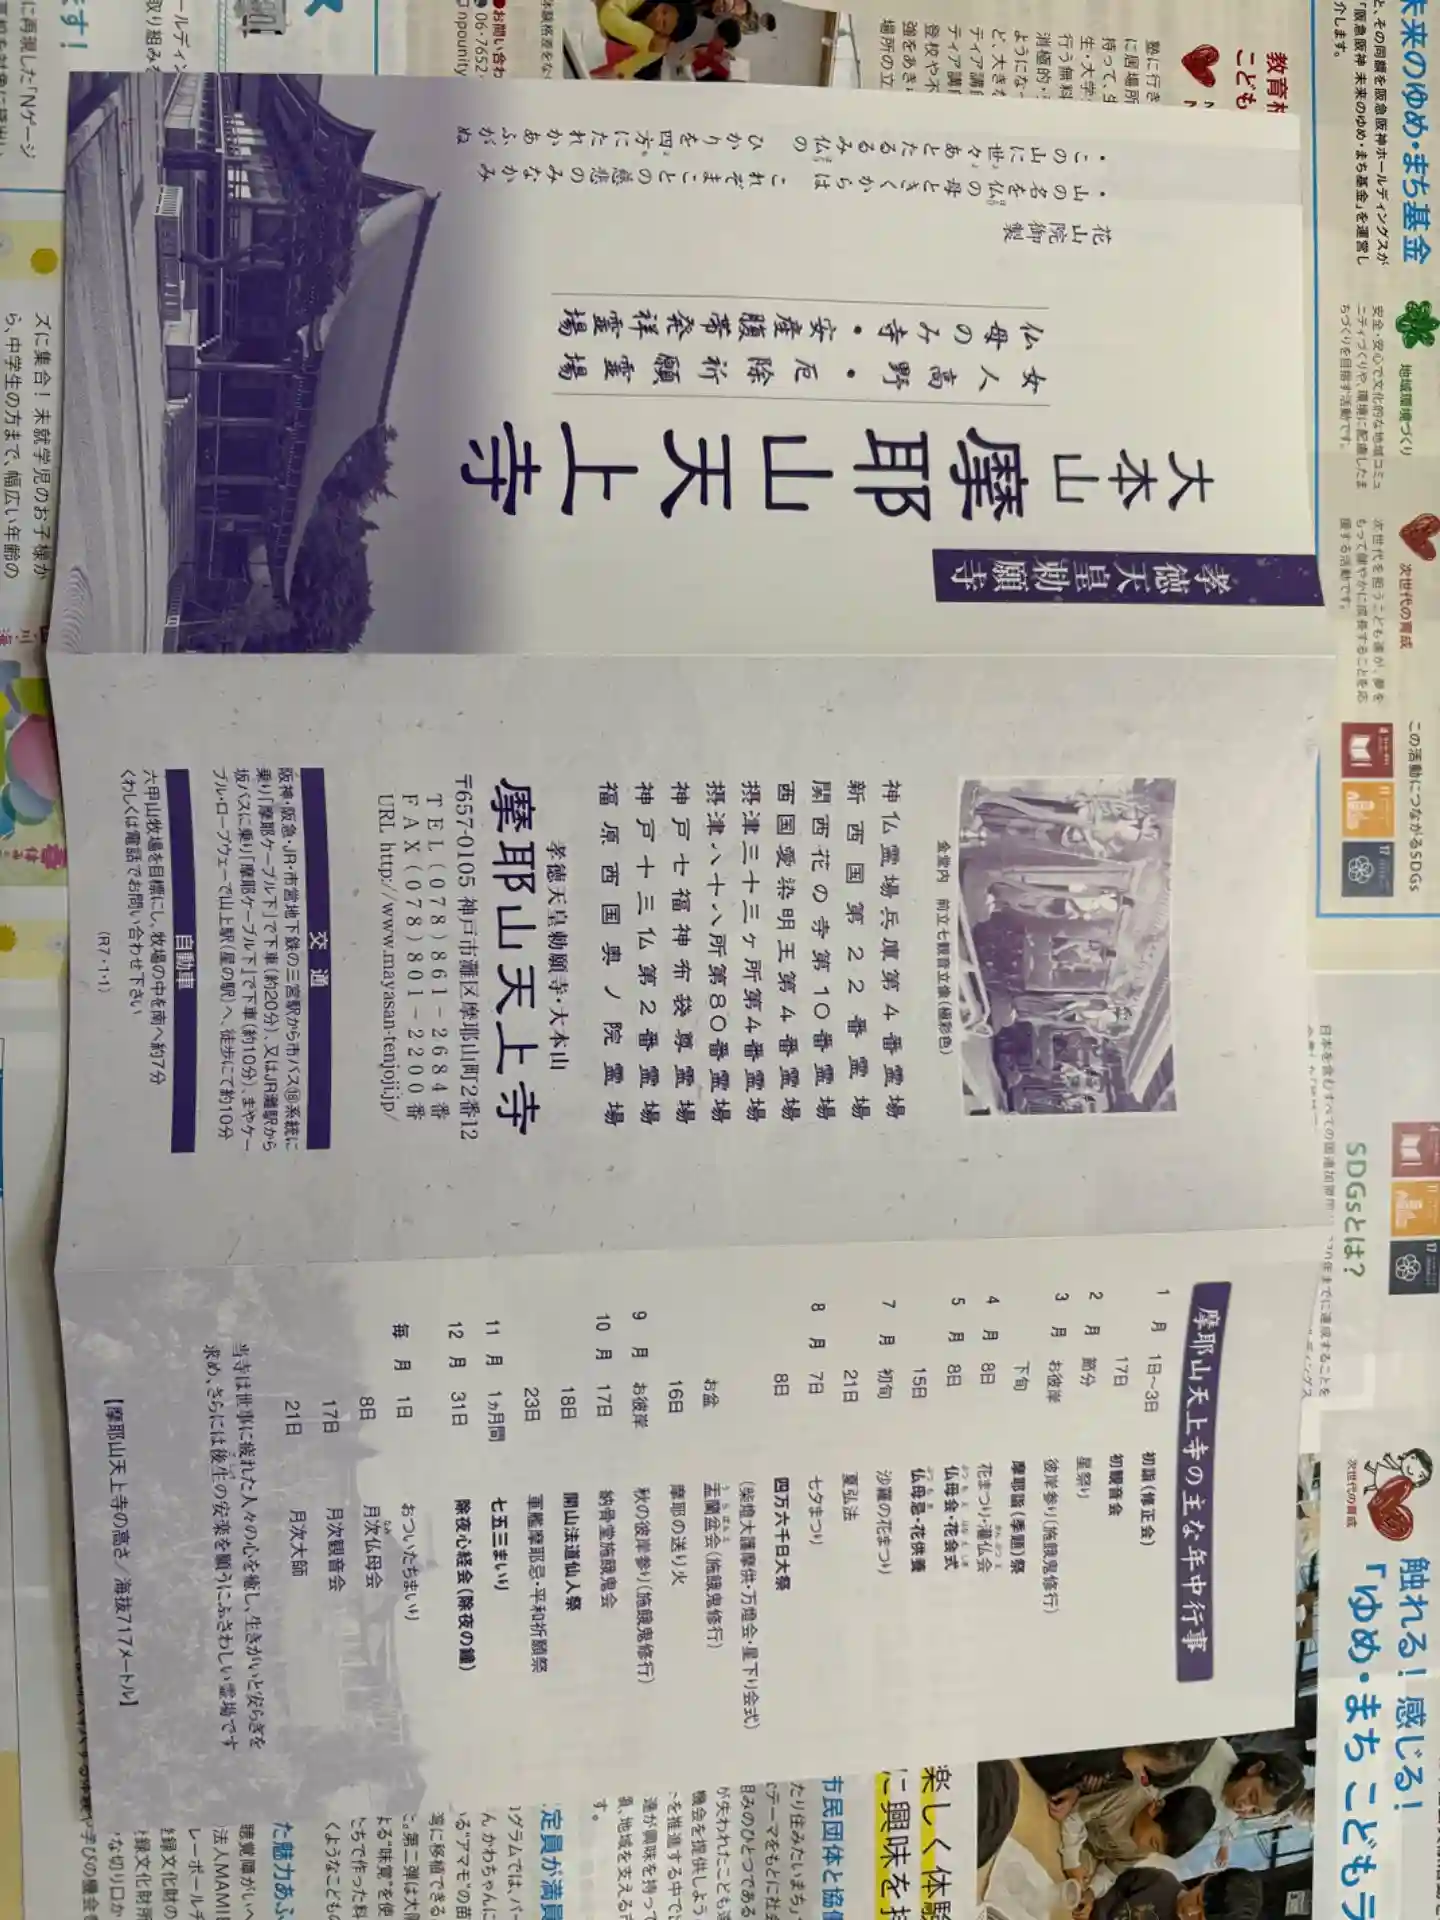 孝徳天皇勅願寺
大本山 摩耶山天上寺
女人高野・厄除祈願霊場
仏母のみ寺・安産腹帯発祥霊場
花山院御製
・山の名を仏の母ときくからは
これぞまことの慈悲のみなかみ
・この山に世々あとたるるみ仏の
ひかりを四方にたれかあふがぬ
金堂内 前立七観音立像(極彩色)
神仏霊場兵庫第4番霊場
新西国第22番霊場
関西花の寺第10番霊場
西国愛染明王第4番霊場
摂津三十三ヶ所第4番霊場
摂津八十八所第80番霊場
神戸七福神布袋尊霊場
神戸十三仏第2番霊場
福原西国奥ノ院霊場
孝徳天皇勅願寺・大本山
摩耶山天上寺
〒657-0105 神戸市灘区摩耶山町2番12
TEL(078)861-2684番
FAX(078)801-2200番
URL http://www.mayasan-tenjoji.jp/
交通
阪神・阪急・JR・市営地下鉄の三宮駅から市バス⑱系統に
乗り「摩耶ケーブル下」で下車(約20分)、又はJR灘駅から
坂バスに乗り「摩耶ケーブル下」で下車(約10分)、まやケー
ブル・ロープウェーで山上駅(星の駅)へ、徒歩にて約10分
自動車
六甲山牧場を目標にし、牧場の中を南へ約7分
くわしくは電話でお問い合わせ下さい
(R7・1・1)
摩耶山天上寺の主な年中行事
1月 1日〜3日 初詣(修正会)
17日 初観音会
2月 節分 星祭り
3月 お彼岸 彼岸参り(施餓鬼修行)
下旬 摩耶詣(季題)祭
4月 8日 花まつり・灌仏会
5月 8日 仏母会・花会式
15日 仏母忌・花供養
7月 初旬 沙羅の花まつり
21日 夏弘法
8月 7日 七夕まつり
8日 四万六千日大祭
(柴燈大護摩供・万燈会・星下り会式)
お盆 盂蘭盆会(施餓鬼修行)
16日 摩耶の送り火
9月 お彼岸 秋の彼岸参り(施餓鬼修行)
10月 17日 納骨堂施餓鬼会
18日 開山法道仙人祭
23日 軍艦摩耶忌・平和祈願祭
11月 1ヵ月間 七五三まいり
12月 31日 除夜心経会(除夜の鐘)
毎月 1日 おついたちまいり
8日 月次仏母会
17日 月次観音会
21日 月次大師
当寺は世事に疲れた人々の心を癒し、生きがいと安らぎを
求め、さらには後生の安楽を願うにふさわしい霊場です
【摩耶山天上寺の高さ/海抜717メートル】
未来のゆめ・まち基金
地域環境づくり
安全・安心で文化的な地域コミュ
ニティづくりや、環境に配慮したま
ちづくりを目指す活動です。
次世代の育成
次世代を担うこども達が、夢を
もって健やかに成長することを応
援する活動です。
この活動につながるSDGs
SDGsとは?
次世代の育成
触れる!感じる!
「ゆめ・まち こどもラ
楽しく体験
に興味を持
市民団体と協働
定員が満員
た魅力あふ
ズに集合! 未就学児のお子様か
ら、中学生の方まで、幅広い年齢の
●お問い合わ
06-7652-
npounity